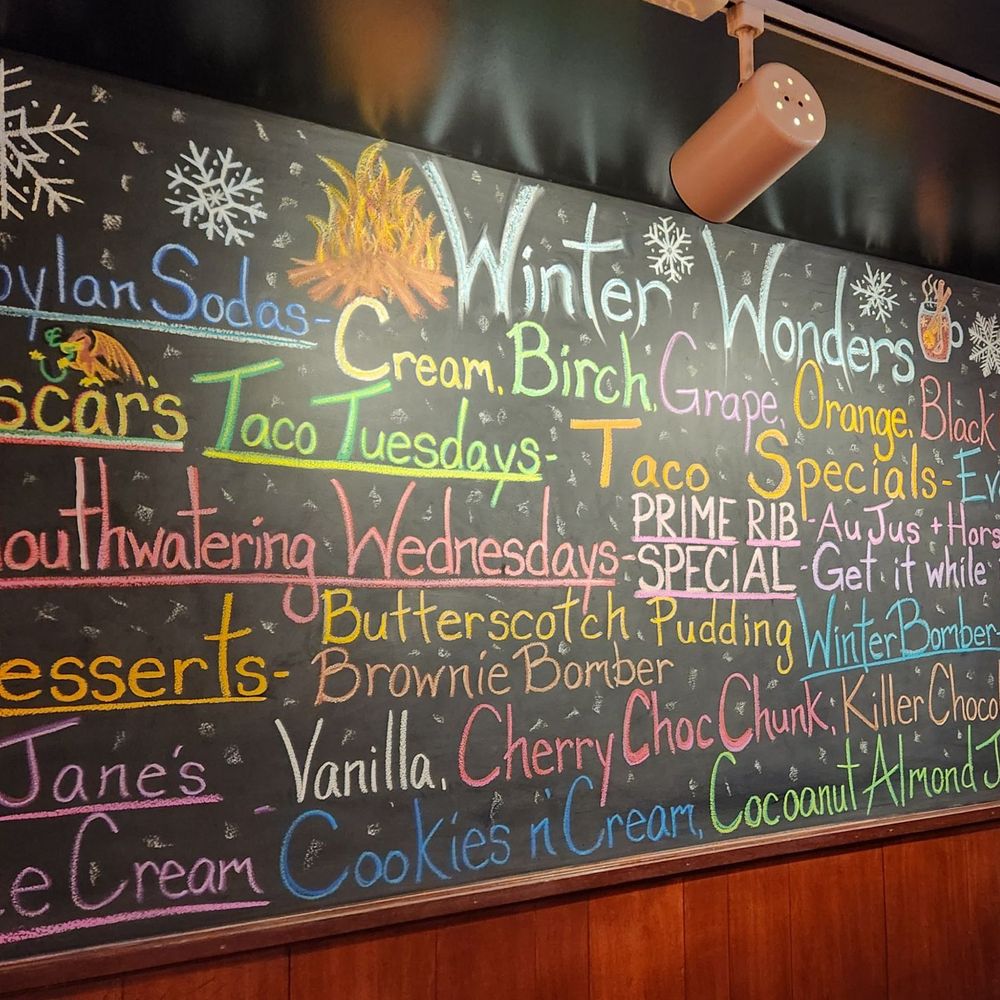 Winter Wonders
oylan Sodas- Cream, Birch, Grape, Orange, Black
scar's Taco Tuesdays- Taco Specials- Ev
outhwatering Wednesdays- PRIME RIB - Au Jus + Hors
SPECIAL - Get it while
esserts- Butterscotch Pudding Winter Bomber
Brownie Bomber
Jane's - Vanilla, Cherry Choc Chunk, Killer Choco
e Cream Cookies n' Cream, Cocoanut Almond J